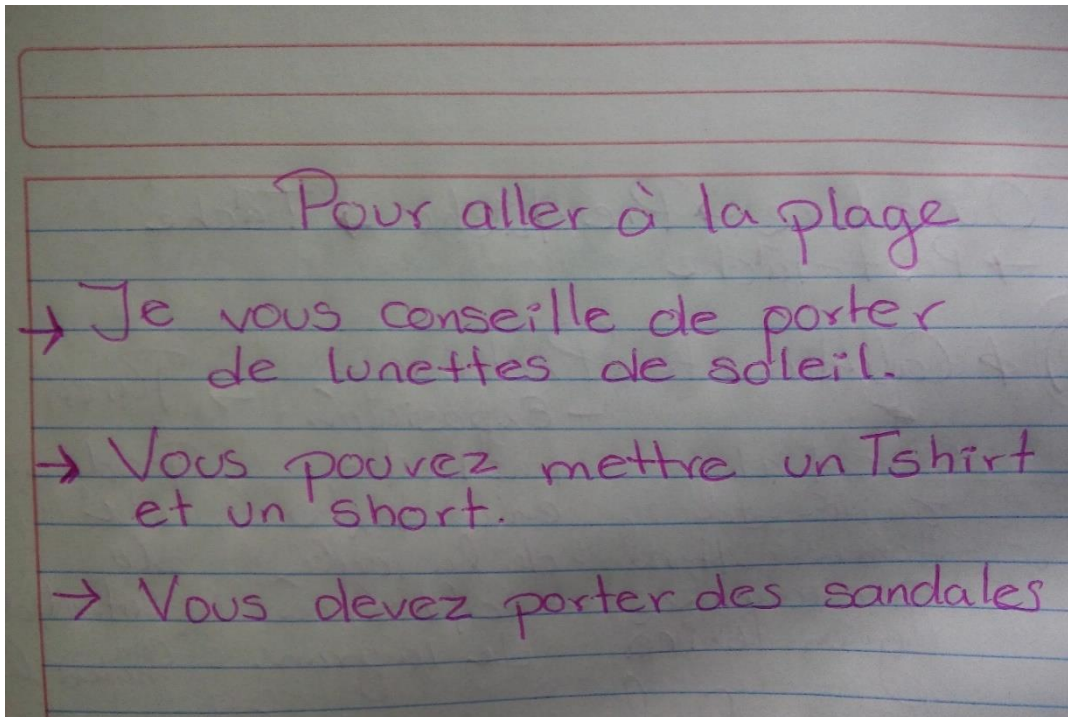 Pour aller à la plage
→ Je vous conseille de porter
de lunettes de soleil.
→ Vous pouvez mettre un Tshirt
et un short.
→ Vous devez porter des sandales